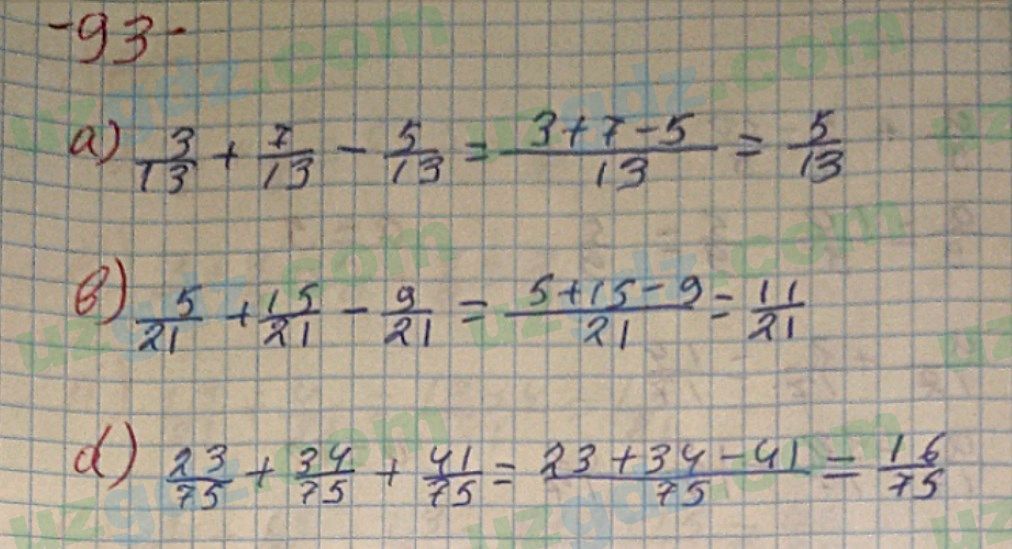 -93-
a) 3/13 + 7/13 - 5/13 = (3+7-5)/13 = 5/13
b) 5/21 + 15/21 - 9/21 = (5+15-9)/21 = 11/21
d) 23/75 + 34/75 + 41/75 = (23+34-41)/75 = 16/75
uzgdz.com